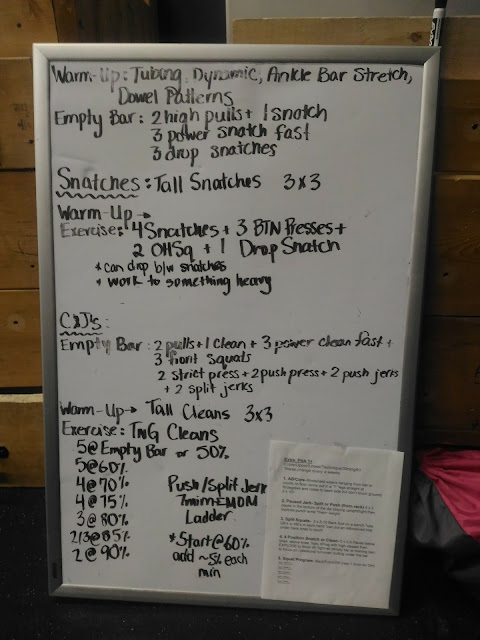 Warm-Up: Tubing, Dynamic, Ankle Bar Stretch,
Dowel Patterns
Empty Bar: 2 high pulls + 1 snatch
3 power snatch fast
3 drop snatches
Snatches: Tall Snatches 3x3
Warm-Up →
Exercise: 4 Snatches + 3 BTN Presses +
2 OHSq + 1 Drop Snatch
* can drop b/w snatches
* work to something heavy
C&J's:
Empty Bar: 2 pulls + 1 clean + 3 power clean fast +
3 front squats
2 strict press + 2 push press + 2 push jerks
+ 2 split jerks
Warm-Up → Tall Cleans 3x3
Exercise: TNG Cleans
5@Empty Bar or 50%
5@60%
4@70%
4@75%
3@80%
2/3@85%
2@90%
Push/Split Jerk
7min EMOM
Ladder
*Start@60%
add ~5% each
min